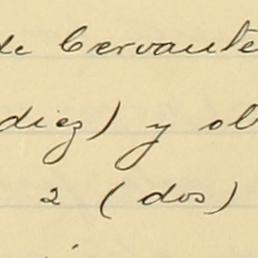 de Cervante
diez) y ol
2 (dos)